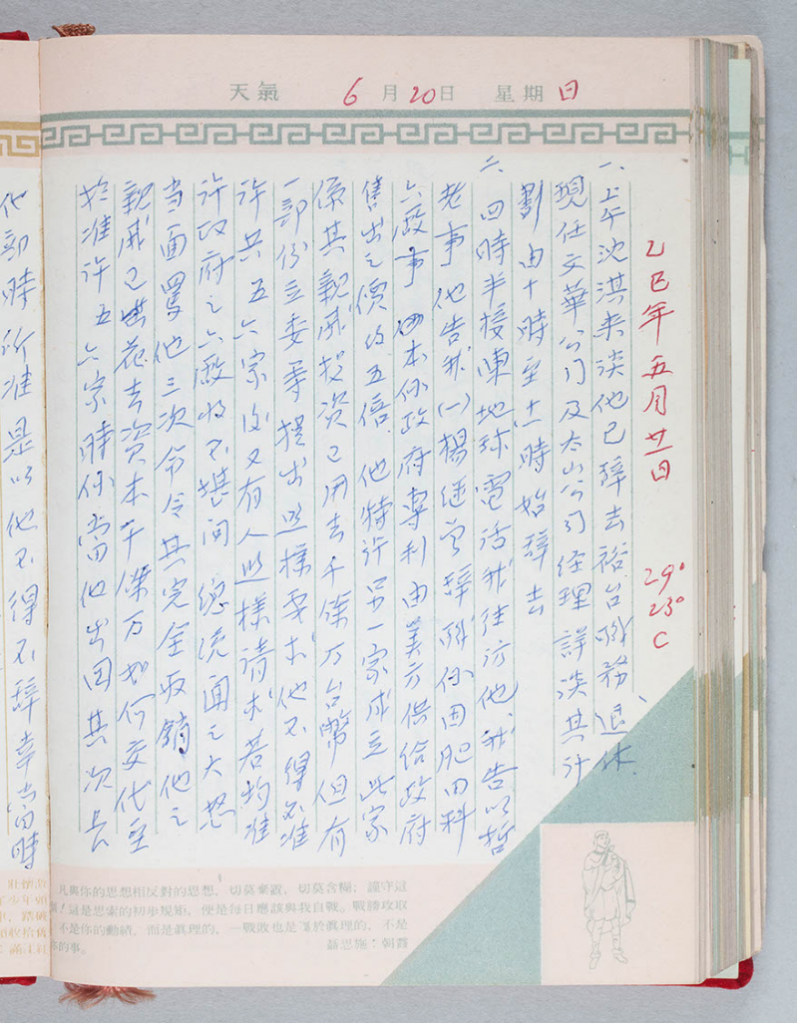 天氣 6月20日 星期日
乙巳年五月廿一日 29° 23° C
一、上午沈淇来談他已辞去裕台職務、退休
現任文華公司及太山公司经理詳談其计
劃由十時至十一時始辞去
二、四時半接陳地球電话我往訪他、我告以哲
老事他告我(一)楊继曾辞職係因肥田料
六厰事 本係政府專利由美方供给政府
售出之價约五倍.他特许另一家成立此家
係其親戚投资已用去千馀万台幣但有
一部份立委等提出照樣要求他不得不准
许共五六宗後又有人照樣请求若均准
许政府之六厰将不堪问 總統闻之大怒
当面罵他三次命令其完全取销他之
親戚已花去资本千馀万如何交代至
於准许五六宗時係當他出国其次長
他部時所准是以他不得不辞幸當時
凡與你的思想相反對的思想,切莫棄置,切莫含糊;謹守這
這是思索的初步規矩,便是每日應該與我自戰。戰勝攻取
不是你的勳績,而是眞理的,一戰敗也是 於眞理的,不是
你的事。